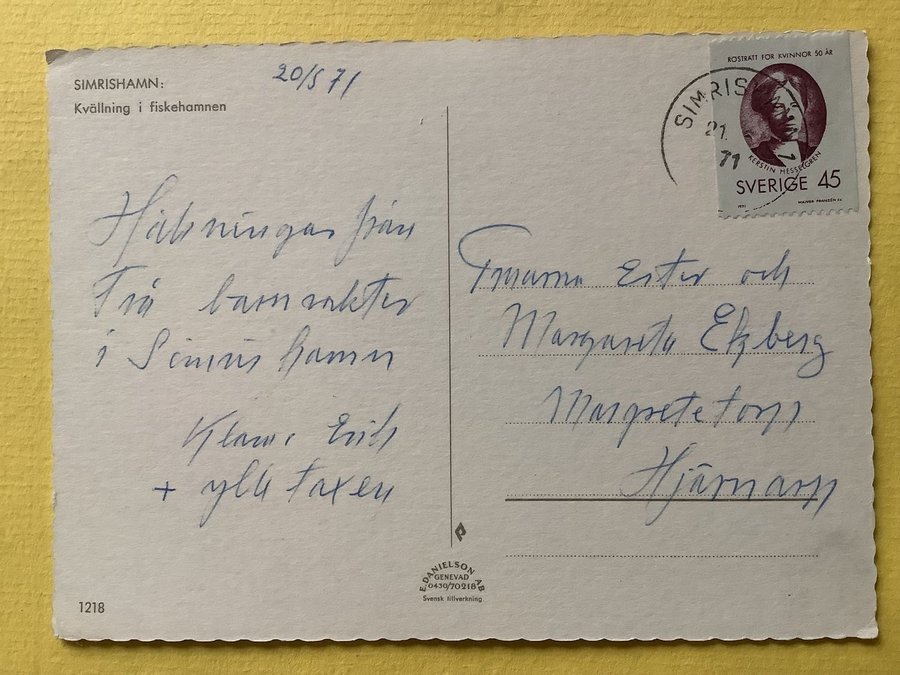 SIMRISHAMN:
Kvällning i fiskehamnen
20/5 71
Hälsningar från
Två barnvakter
i Simrishamn
Klaus Erik
+ ylletaxen
1218
E. DANIELSON AB
GENEVAD
0430/70218
Svensk tillverkning.
RÖSTRÄTT FÖR KVINNOR 50 ÅR
KERSTIN HESSELGREN
SVERIGE 45
1971 MAJVOR FRANZÉN SC
SIMRIS
21.
71
Ester och
Margareta Ekberg
Margretetorp
Hjärnarp